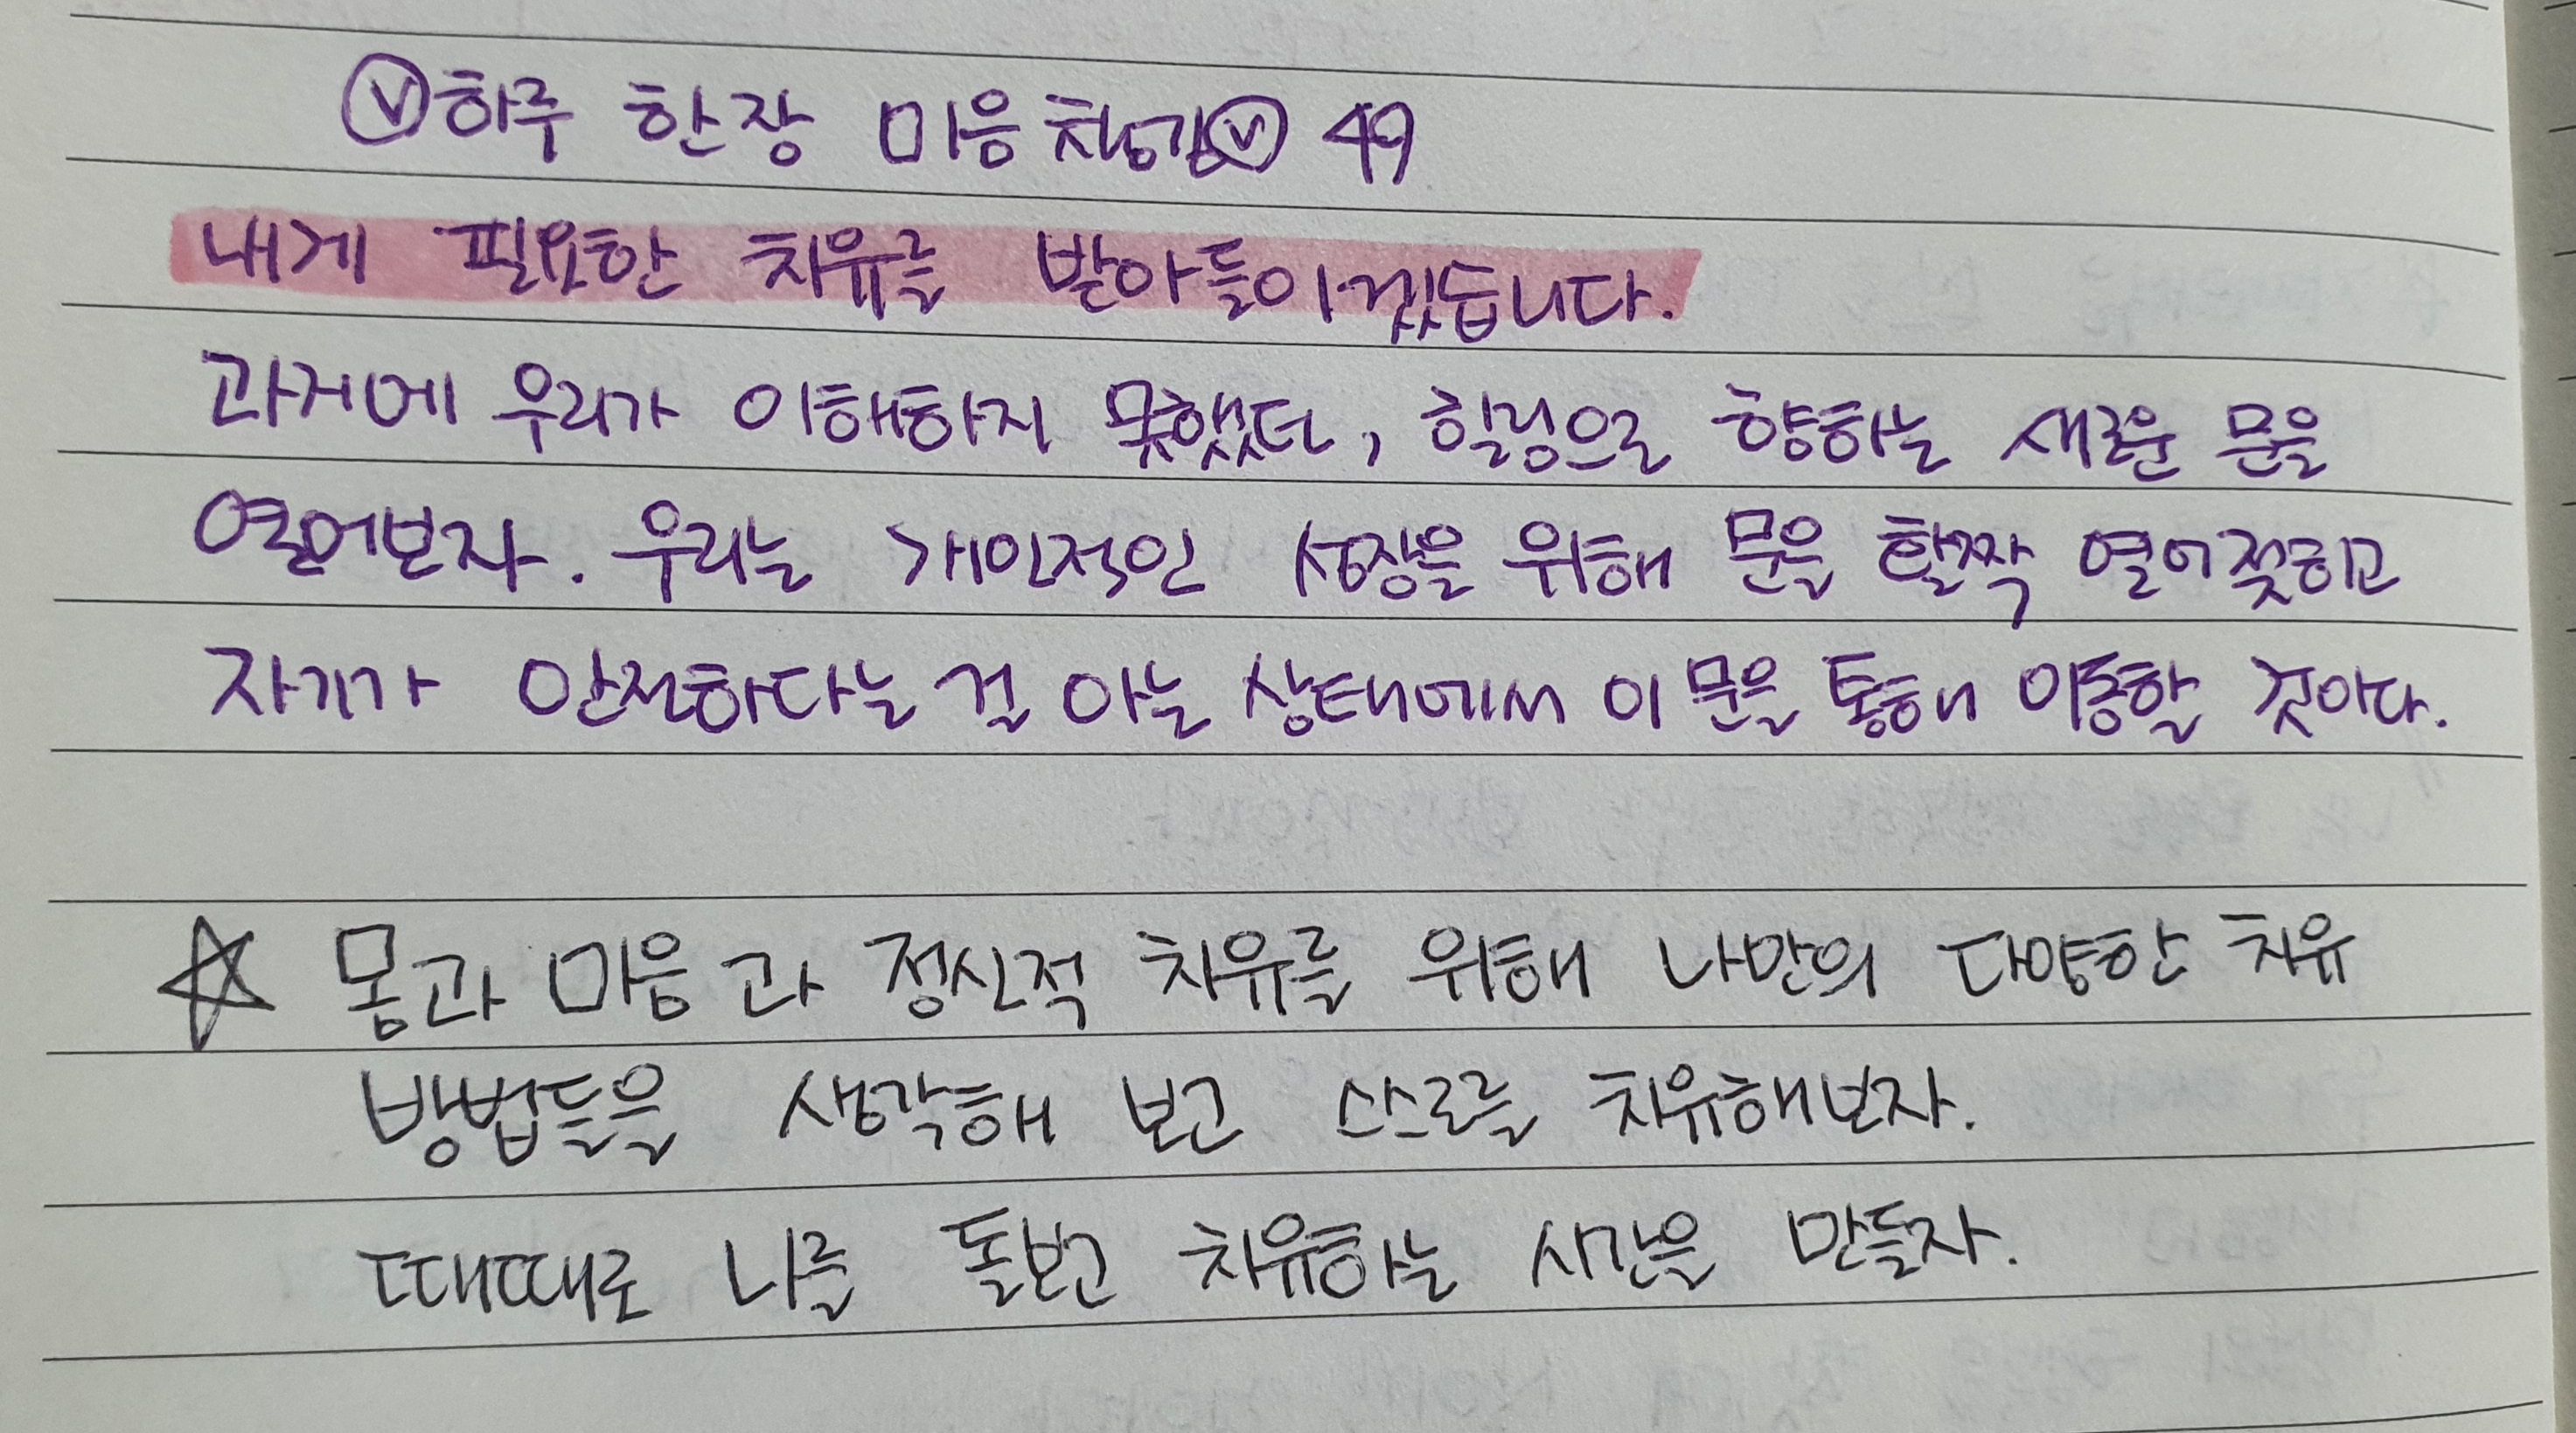 ⓥ하루 한장 마음챙김ⓥ 49
내게 필요한 치유를 받아들이겠습니다.
과거에 우리가 이해하지 못했던, 힐링으로 향하는 새로운 문을
열어보자. 우리는 개인적인 성장을 위해 문을 활짝 열어젖히고
자기가 안전하다는 걸 아는 상태에서 이 문을 통해 이동할 것이다.
☆ 몸과 마음과 정신적 치유를 위해 나만의 다양한 치유
방법들을 생각해 보고 스스로를 치유해보자.
때때로 나를 돌보고 치유하는 시간을 만들자.